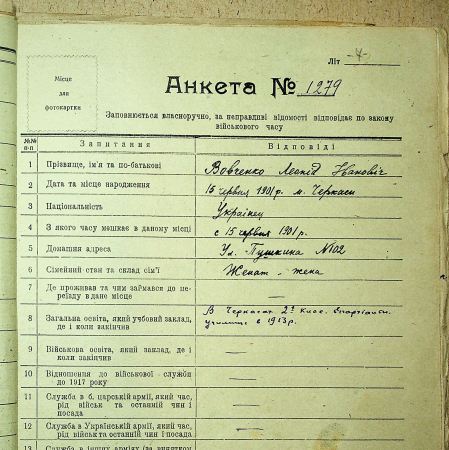 Літ -7-
Місце
для
фотокартки
Анкета № 1279
Заповнюється власноручно, за неправдиві відомості відповідає по закону
військового часу
№№ п-п Запитання Відповіді
1 Прізвище, ім'я та по-батькові Вовченко Леонід Іванович
2 Дата та місце народження 15 червня 1901 р. м. Черкаси
3 Національність Українец
4 З якого часу мешкає в даному місці с 15 червня 1901 р.
5 Домашня адреса Ул. Пушкина №102
6 Сімейний стан та склад сім'ї Женат - жена
7 Де проживав та чим займався до пе-
реїзду в дане місце —
8 Загальна освіта, який учбовий заклад,
де і коли закінчив
В Черкасах 2х
училище в 1913 р.
9 Військова освіта, який заклад, де і
коли закінчив —
10 Відношення до військової служби
до 1917 року —
11 Служба в б. царській армії, який час,
рід військ та останній чин і
посада —
12 Служба в Українській армії, який час,
рід військ та останній чин і посада —
13 Служба в інших арміях (за винятком